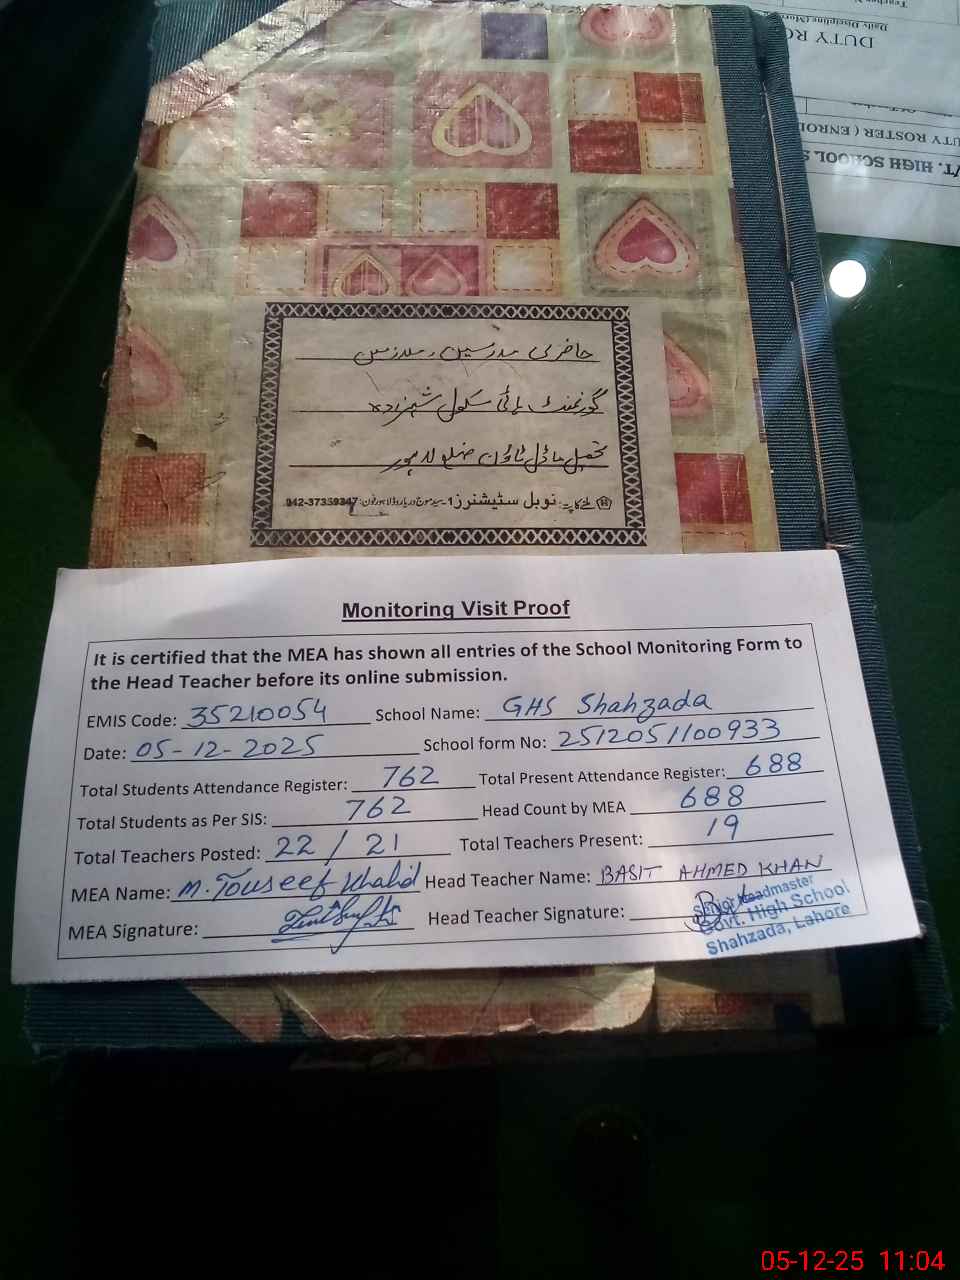 DUTY RO
Daily Discipline (Mor
UTY ROSTER ( ENROL
VT. HIGH SCHOOL S
حاضری مدرسین و ملازمین
گورنمنٹ ہائی سکول شہزادہ
تحصیل ماڈل ٹاؤن ضلع لاہور
ملنے کا پتہ: نوبل سٹیشنرز 1-سید موج دریا روڈ لاہور فون: 042-37359347
Monitoring Visit Proof
It is certified that the MEA has shown all entries of the School Monitoring Form to
the Head Teacher before its online submission.
EMIS Code: 35210054 School Name: GHS Shahzada
Date: 05-12-2025 School form No: 2512051100933
Total Students Attendance Register: 762 Total Present Attendance Register: 688
Total Students as Per SIS: 762 Head Count by MEA 688
Total Teachers Posted: 22 / 21 Total Teachers Present: 19
MEA Name: M. Touseef Khalid Head Teacher Name: BASIT AHMED KHAN
MEA Signature: Head Teacher Signature:
Senior Headmaster
Govt. High School
Shahzada, Lahore
05-12-25 11:04